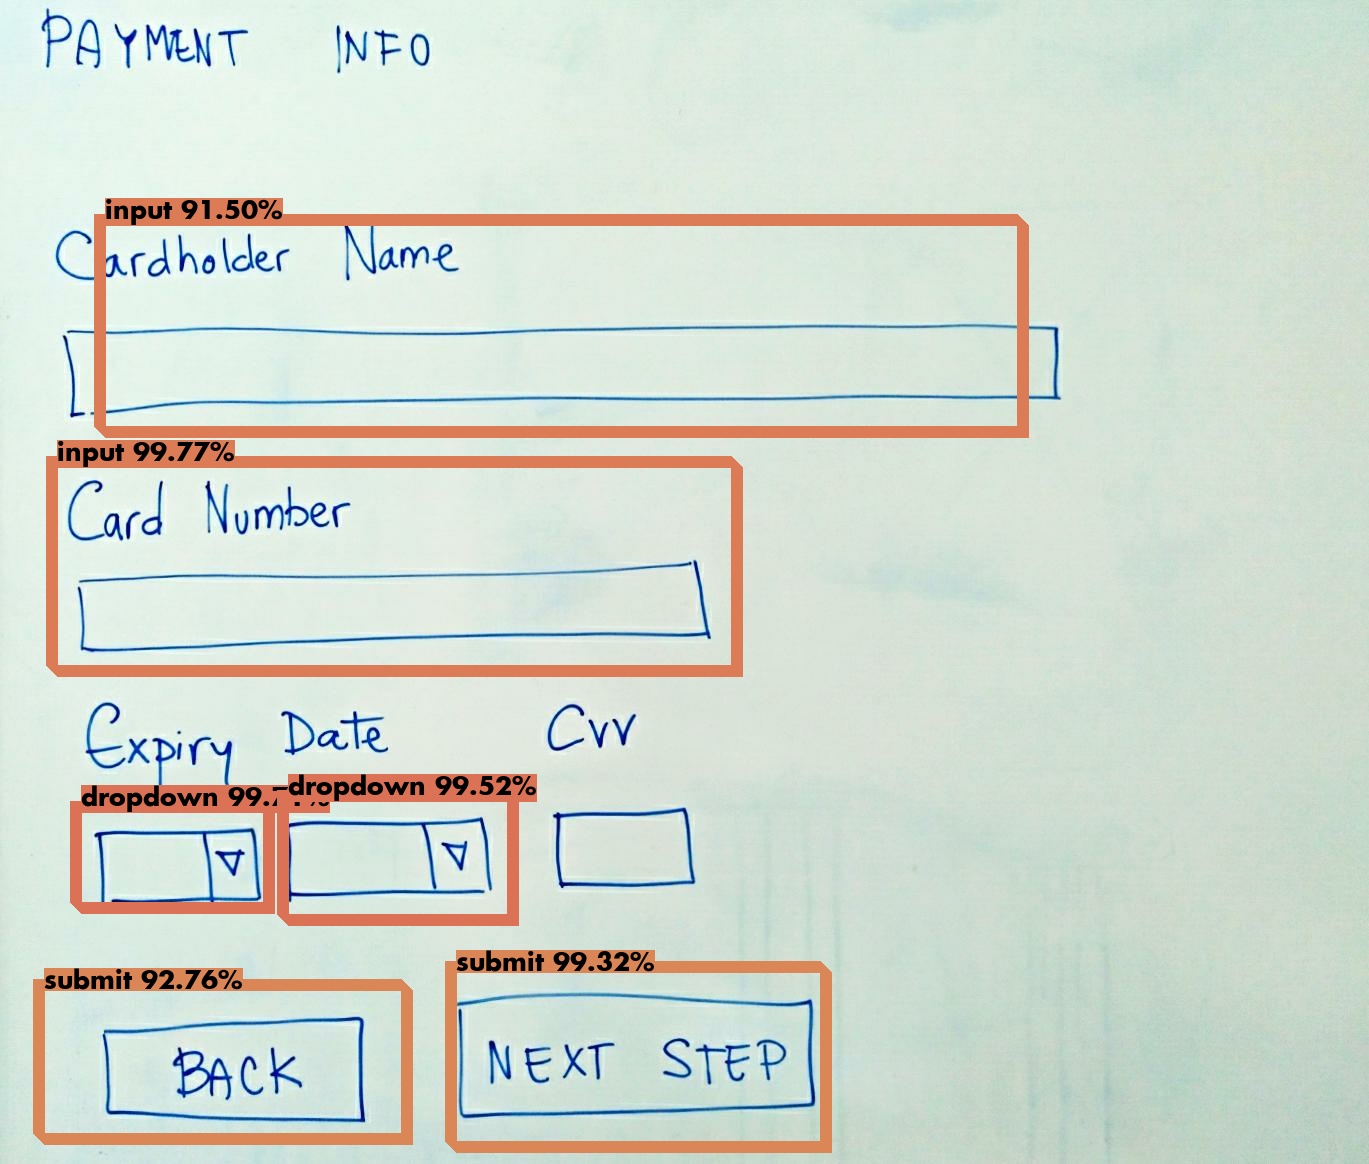 PAYMENT INFO
input 91.50%
Cardholder Name
input 99.77%
Card Number
Expiry Date Cvv
dropdown dropdown 99.52%
submit 92.76% submit 99.32%
BACK NEXT STEP